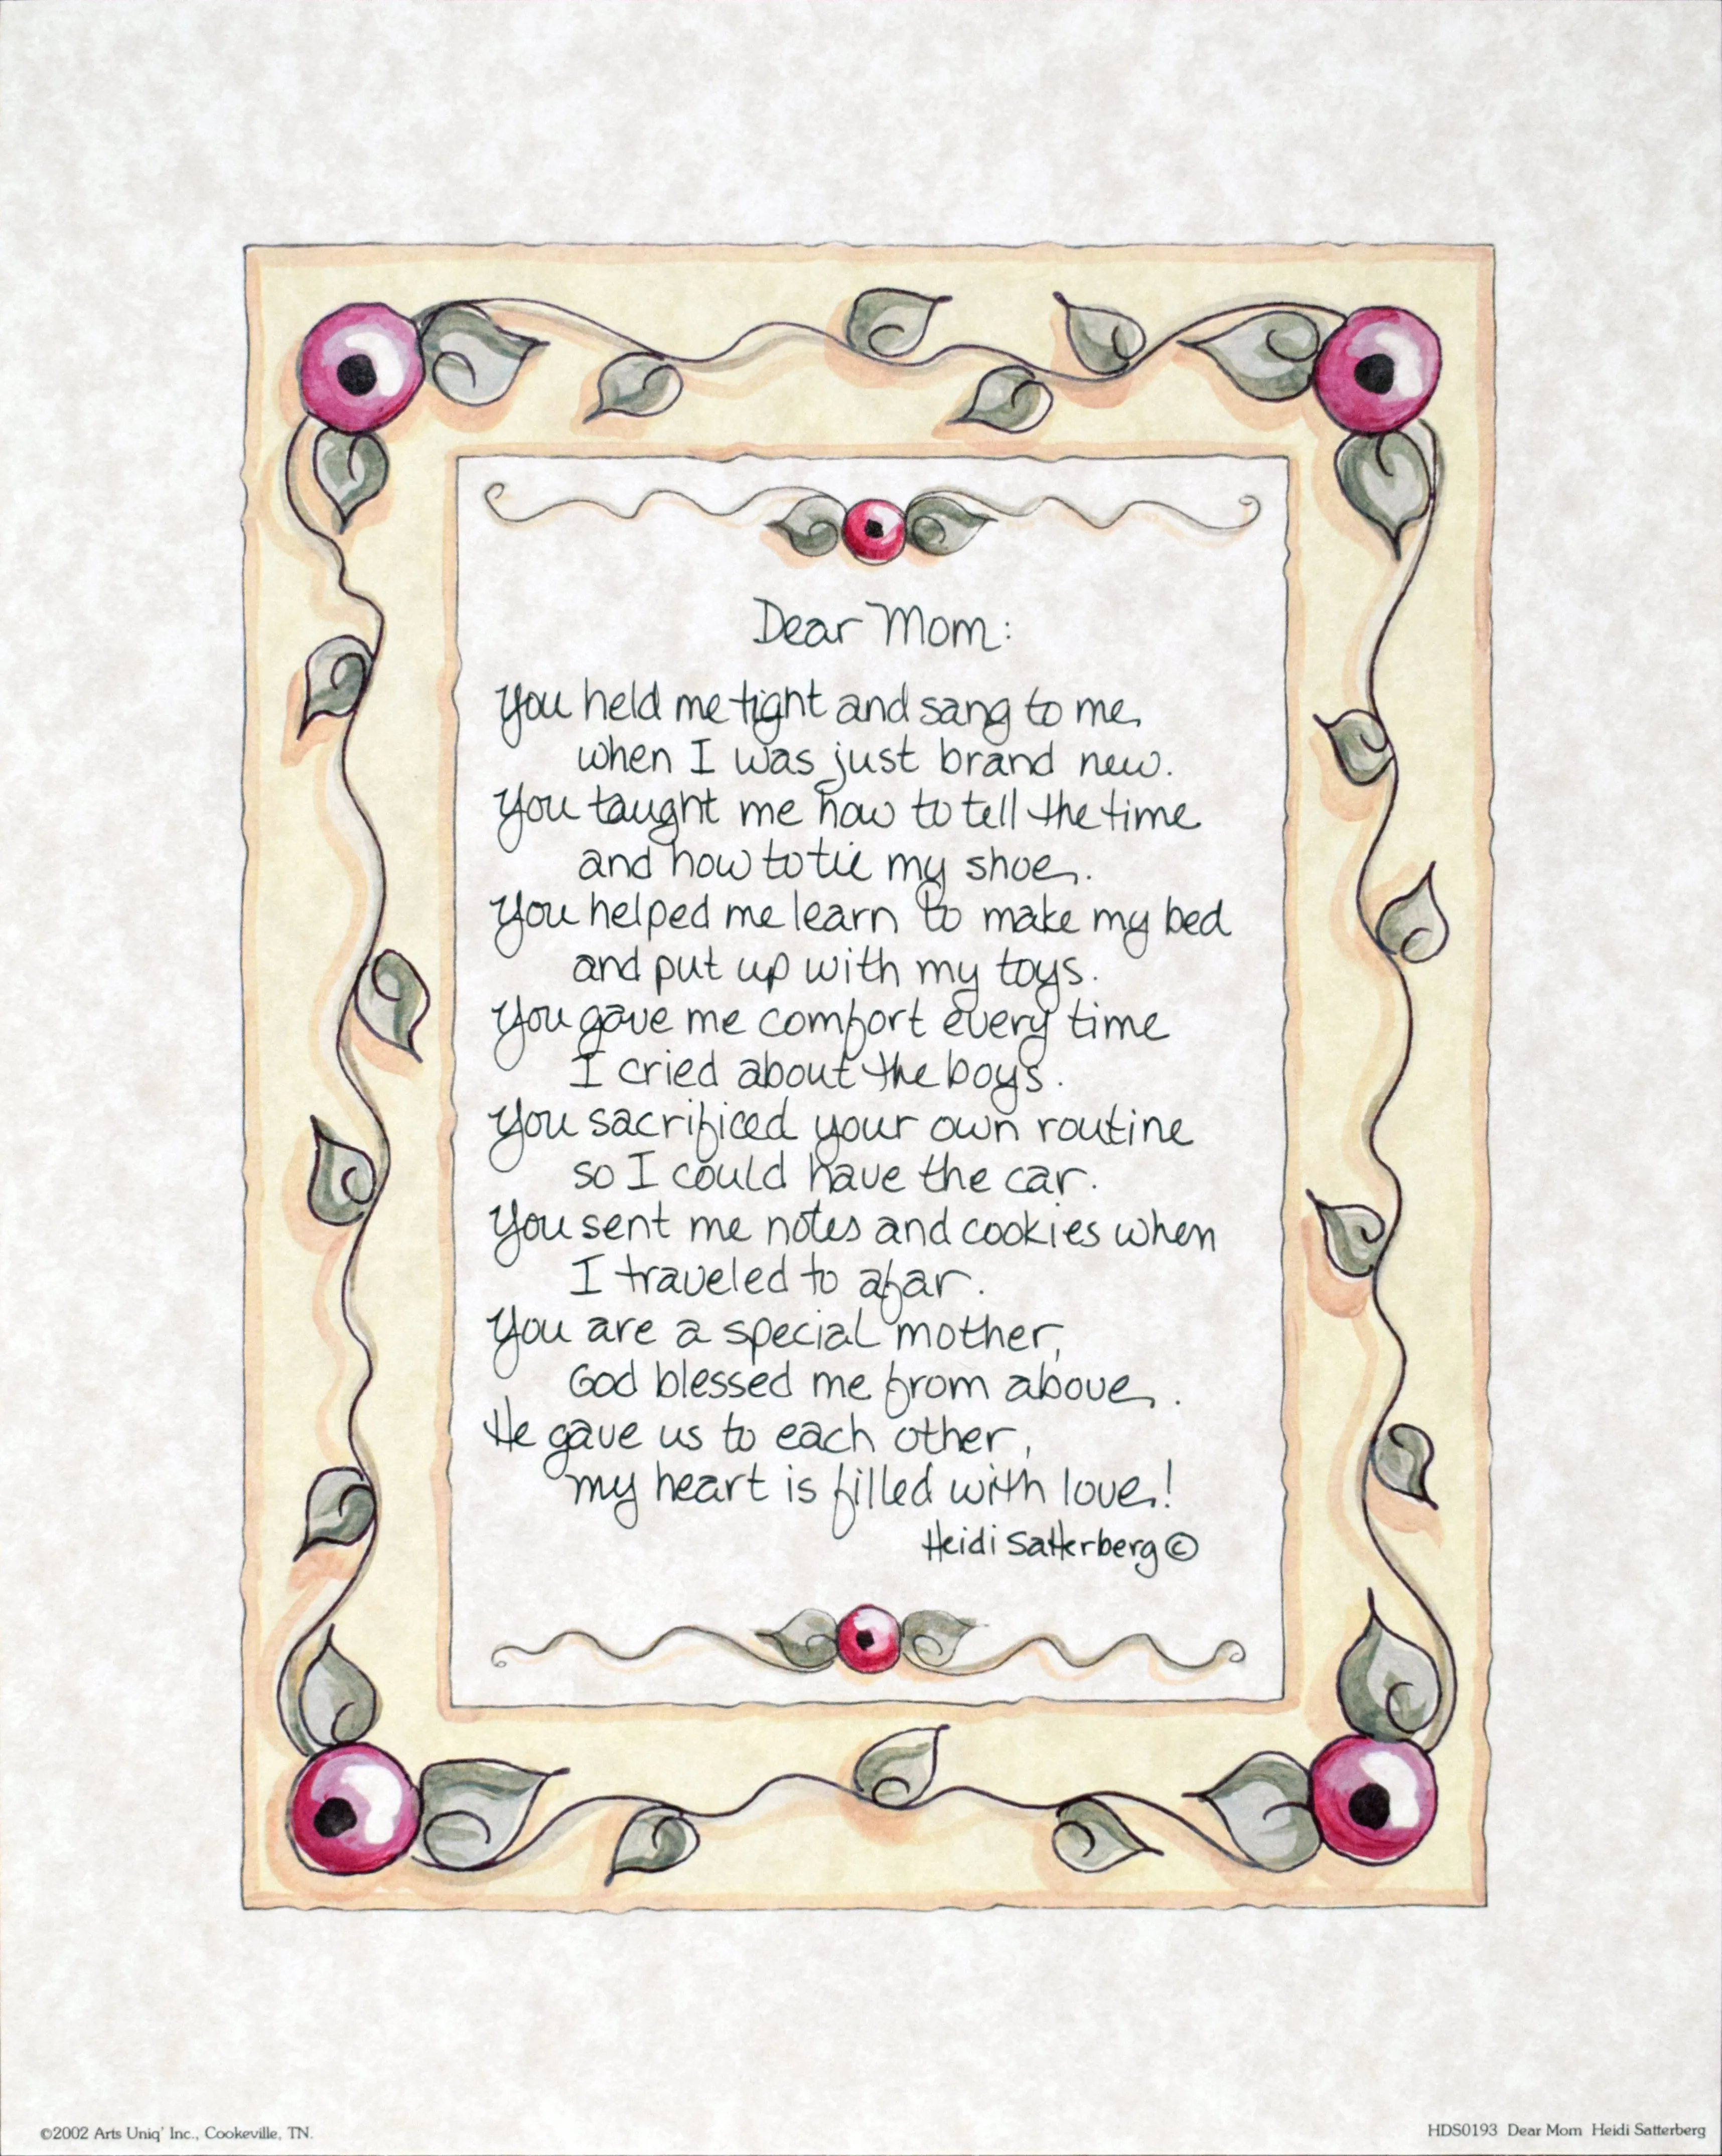 Dear Mom:
You held me tight and sang to me,
when I was just brand new.
You taught me how to tell the time
and how to tie my shoe.
You helped me learn to make my bed
and put up with my toys.
You gave me comfort every time
I cried about the boys.
You sacrificed your own routine
so I could have the car.
You sent me notes and cookies when
I traveled to afar.
You are a special mother,
God blessed me from above.
He gave us to each other,
my heart is filled with love!
Heidi Satterberg ©
©2002 Arts Uniq' Inc., Cookeville, TN.
HDS0193 Dear Mom Heidi Satterberg